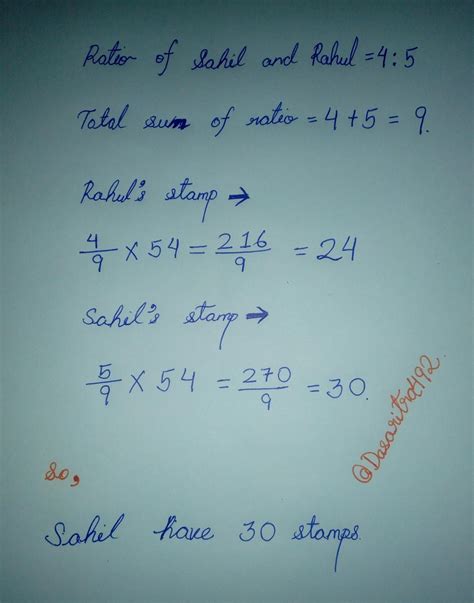 Ratio of Sahil and Rahul = 4 : 5
Total sum of ratio = 4 + 5 = 9.
Rahul's stamp →
4/9 × 54 = 216/9 = 24
Sahil's stamp →
5/9 × 54 = 270/9 = 30.
@Dasaritra492
so,
Sahil have 30 stamps.